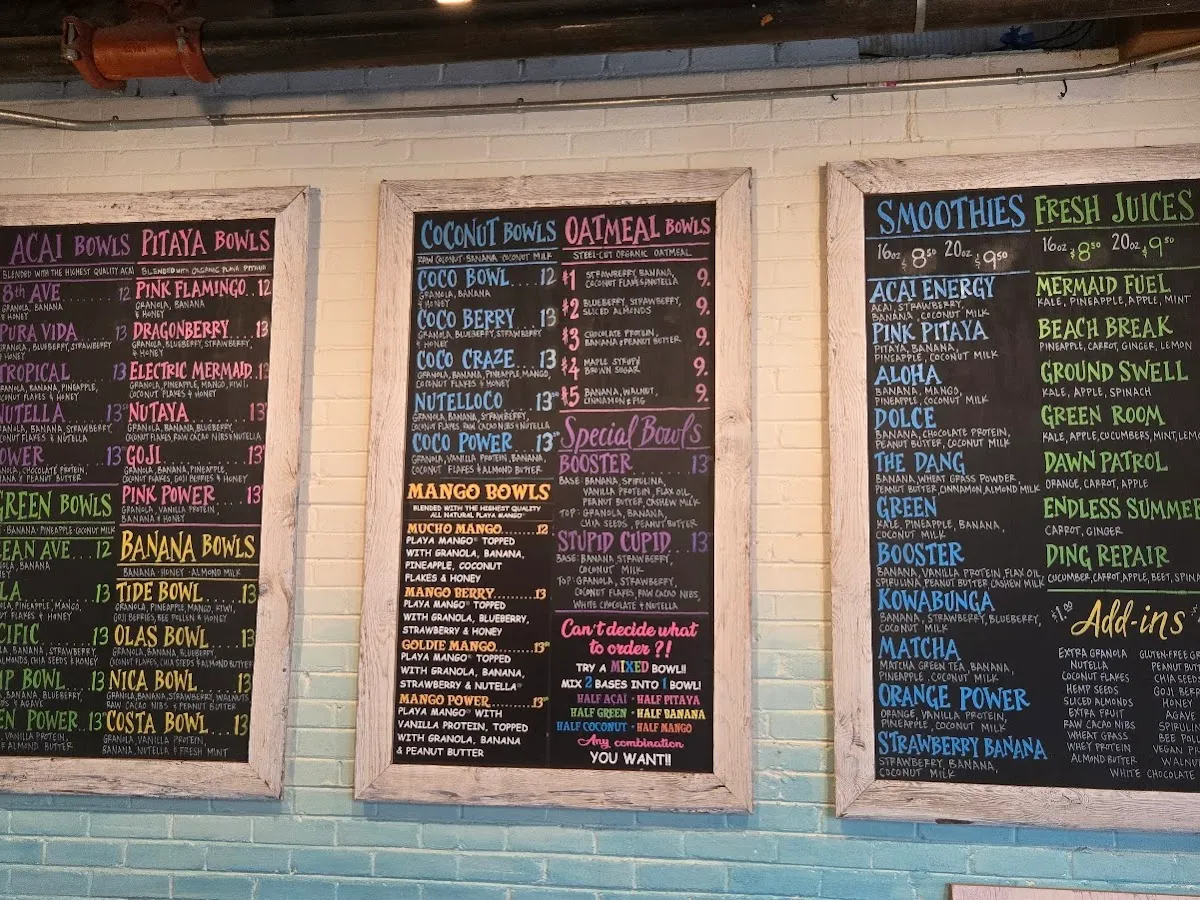 ACAI BOWLS
BLENDED WITH THE HIGHEST QUALITY ACAI
8th AVE 12
GRANOLA, BANANA
& HONEY
PURA VIDA 13
GRANOLA, BLUEBERRY, STRAWBERRY
& HONEY
TROPICAL 13
GRANOLA, BANANA, PINEAPPLE,
COCONUT FLAKES & HONEY
NUTELLA 13
GRANOLA, BANANA, STRAWBERRY,
COCONUT FLAKES & NUTELLA
POWER 13
CHOCOLATE PROTEIN,
BANANA & PEANUT BUTTER
GREEN BOWLS
BANANA · PINEAPPLE · COCONUT MILK
EAN AVE 12
GRANOLA, BANANA
& HONEY
LA 13
GRANOLA, PINEAPPLE, MANGO,
COCONUT FLAKES & HONEY
CIFIC 13
BANANA, STRAWBERRY,
ALMONDS, CHIA SEEDS & HONEY
MP BOWL 13
BANANA, BLUEBERRY,
SEEDS & AGAVE
EN POWER 13
VANILLA PROTEIN,
ALMOND BUTTER
PITAYA BOWLS
BLENDED WITH ORGANIC PLAYA PITAYA
PINK FLAMINGO 12
GRANOLA, BANANA
& HONEY
DRAGONBERRY 13
GRANOLA, BLUEBERRY, STRAWBERRY,
& HONEY
ELECTRIC MERMAID 13
GRANOLA, PINEAPPLE, MANGO, KIWI,
COCONUT FLAKES & HONEY
NUTAYA 13
GRANOLA, BANANA, BLUEBERRY,
COCONUT FLAKES, RAW CACAO NIBS & NUTELLA
GOJI 13
GRANOLA, BANANA, PINEAPPLE,
COCONUT FLAKES, GOJI BERRIES & HONEY
PINK POWER 13
GRANOLA, VANILLA PROTEIN,
BANANA & HONEY
BANANA BOWLS
BANANA · HONEY · ALMOND MILK
TIDE BOWL 13
GRANOLA, PINEAPPLE, MANGO, KIWI,
GOJI BERRIES, BEE POLLEN & HONEY
OLAS BOWL 13
GRANOLA, BANANA, BLUEBERRY,
COCONUT FLAKES, CHIA SEEDS & ALMOND BUTTER
NICA BOWL 13
GRANOLA, BANANA, STRAWBERRY, WALNUTS
RAW CACAO NIBS & PEANUT BUTTER
COSTA BOWL 13
GRANOLA, VANILLA PROTEIN,
BANANA, NUTELLA & FRESH MINT
COCONUT BOWLS
RAW COCONUT · BANANA · COCONUT MILK
COCO BOWL 12
GRANOLA, BANANA
& HONEY
COCO BERRY 13
GRANOLA, BLUEBERRY, STRAWBERRY
& HONEY
COCO CRAZE 13
GRANOLA, BANANA, PINEAPPLE, MANGO,
COCONUT FLAKES & HONEY
NUTELLOCO 13
GRANOLA, BANANA, STRAWBERRY,
COCONUT FLAKES, RAW CACAO NIBS & NUTELLA
COCO POWER 13
GRANOLA, VANILLA PROTEIN, BANANA,
COCONUT FLAKES & ALMOND BUTTER
MANGO BOWLS
BLENDED WITH THE HIGHEST QUALITY
ALL NATURAL PLAYA MANGO
MUCHO MANGO 12
PLAYA MANGO® TOPPED
WITH GRANOLA, BANANA,
PINEAPPLE, COCONUT
FLAKES & HONEY
MANGO BERRY 13
PLAYA MANGO® TOPPED
WITH GRANOLA, BLUEBERRY,
STRAWBERRY & HONEY
GOLDIE MANGO 13
PLAYA MANGO® TOPPED
WITH GRANOLA, BANANA,
STRAWBERRY & NUTELLA®
MANGO POWER 13
PLAYA MANGO® WITH
VANILLA PROTEIN, TOPPED
WITH GRANOLA, BANANA
& PEANUT BUTTER
OATMEAL BOWLS
STEEL-CUT ORGANIC OATMEAL
#1 STRAWBERRY, BANANA, 9.
COCONUT FLAKES & NUTELLA
#2 BLUEBERRY, STRAWBERRY, 9.
SLICED ALMONDS
#3 CHOCOLATE PROTEIN, 9.
BANANA & PEANUT BUTTER
#4 MAPLE SYRUP/ 9.
BROWN SUGAR
#5 BANANA, WALNUT, 9.
CINNAMON & FIG
Special Bowls
BOOSTER 13
BASE: BANANA, SPIRULINA,
VANILLA PROTEIN, FLAX OIL,
PEANUT BUTTER CASHEW MILK
TOP: GRANOLA, BANANA,
CHIA SEEDS, PEANUT BUTTER
STUPID CUPID 13
BASE: BANANA, STRAWBERRY,
COCONUT MILK
TOP: GRANOLA, STRAWBERRY,
COCONUT FLAKES, RAW CACAO NIBS,
WHITE CHOCOLATE & NUTELLA
Can't decide what
to order?!
TRY A MIXED BOWL!!
MIX 2 BASES INTO 1 BOWL!
HALF ACAI · HALF PITAYA
HALF GREEN · HALF BANANA
HALF COCONUT · HALF MANGO
Any combination
YOU WANT!!
SMOOTHIES
16oz $8.50 20oz $9.50
ACAI ENERGY
ACAI, STRAWBERRY,
BANANA, COCONUT MILK
PINK PITAYA
PITAYA, BANANA,
PINEAPPLE, COCONUT MILK
ALOHA
BANANA, MANGO,
PINEAPPLE, COCONUT MILK
DOLCE
BANANA, CHOCOLATE PROTEIN,
PEANUT BUTTER, COCONUT MILK
THE DANG
BANANA, WHEAT GRASS POWDER,
PEANUT BUTTER, CINNAMON, ALMOND MILK
GREEN
KALE, PINEAPPLE, BANANA,
COCONUT MILK
BOOSTER
BANANA, VANILLA PROTEIN, FLAX OIL
SPIRULINA, PEANUT BUTTER CASHEW MILK
KOWABUNGA
BANANA, STRAWBERRY, BLUEBERRY,
COCONUT MILK
MATCHA
MATCHA GREEN TEA, BANANA,
PINEAPPLE, COCONUT MILK
ORANGE POWER
ORANGE, VANILLA PROTEIN,
PINEAPPLE, COCONUT MILK
STRAWBERRY BANANA
STRAWBERRY, BANANA,
COCONUT MILK
FRESH JUICES
16oz $8.50 20oz $9.50
MERMAID FUEL
KALE, PINEAPPLE, APPLE, MINT
BEACH BREAK
PINEAPPLE, CARROT, GINGER, LEMON
GROUND SWELL
KALE, APPLE, SPINACH
GREEN ROOM
KALE, APPLE, CUCUMBERS, MINT, LEMO
DAWN PATROL
ORANGE, CARROT, APPLE
ENDLESS SUMMER
CARROT, GINGER
DING REPAIR
CUCUMBER, CARROT, APPLE, BEET, SPINA
$1.00 Add-ins
EXTRA GRANOLA
NUTELLA
COCONUT FLAKES
HEMP SEEDS
SLICED ALMONDS
EXTRA FRUIT
RAW CACAO NIBS
WHEAT GRASS
WHEY PROTEIN
ALMOND BUTTER
GLUTEN-FREE GR
PEANUT BUT
CHIA SEEDS
GOJI BER
HONEY
AGAVE
SPIRULIN
BEE POLL
VEGAN P
WALNU
WHITE CHOCOLATE